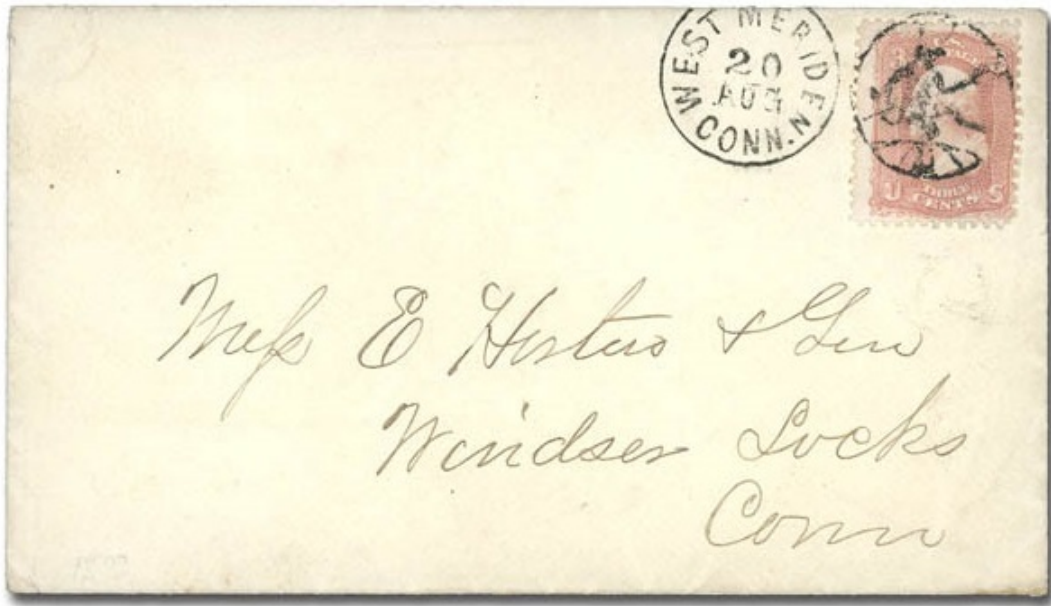 WEST MERIDEN
20
AUG
CONN.
U THREE CENTS S
Mess E & 
Windser Locks
Conn